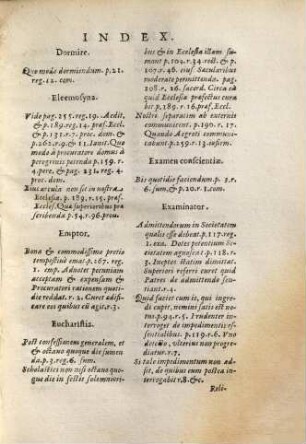 INDEX.
Dormire.
Quo modo dormiendum. p.21.
reg.12. com.
Eleemosyna.
Vide pag.255.reg.19. Aedit.
& p.189.reg.14. præf. Eccl.
& p.131.r.7. proc. dom. &
p.262.r.9. & 11. Ianit. Quo
modo à procuratore domus à
peregrinis petenda p.159. r.
4. pere. & p.231. reg. 4.
proc. dom.
Eius arcula non sit in nostra
Ecclesia. p. 189. r.15. præf.
Eccl. Quæ superioribus præ
scribenda p.54.r.96.prou.
Emptor.
Bona & commodissimo pretio
tempestiuè emat p.167. reg.
1. emp. Adnotet pecuniam
acceptam & expensam &
Procuratori rationem quoti-
die reddat. r.2. Curet ædifi-
care eos quibuscũ agit r.3.
Eucharistia.
Post confessionem generalem, et
& octauo quoque die sumen
da p.3.reg.6. sum.
Scholastici non nisi octauo quo
que die in festis solemniori-
bus & in Ecclesia istam su-
mant p.102.r.34. rect. & p.
107.r.46. eius Sæcularibus
moderatè permittenda. pag.
108.r.26. sacerd. Circa eã
quid Ecclesiæ præfectus cura
bit p.189. r.16. præf. Eccl.
Nostri separatim ab externis
communicent. p.190. r.17.
Quando Aegroti communi-
cabunt p.259.r.13.infirm.
Examen conscientiæ.
Bis quotidie faciendum p.3.r.
6. sum. & p.20.r.1.com.
Examinator.
Admittendorum in Societatem
qualis esse debeat p.117.reg.
1.exa. Dotes petentium So-
cietatem agnoscat p.118.r.
3. Ineptos statim dimittat.
Superiori referri curet quid
Patres de dimittendo sen-
tiant r.4.
Quid faciet cum is, qui ingre-
di cupit, nemini satis est no-
tus p.94.r.5. Prudenter in-
terroget de impedimentis es-
sentialibus. p.119.r.6. Vno
detecto, vlterius non pro-
grediatur. r.7.
Si tale impedimentum non ad-
sit, de quibus eum postea in-
terrogabit r.8.&c.
Reli-